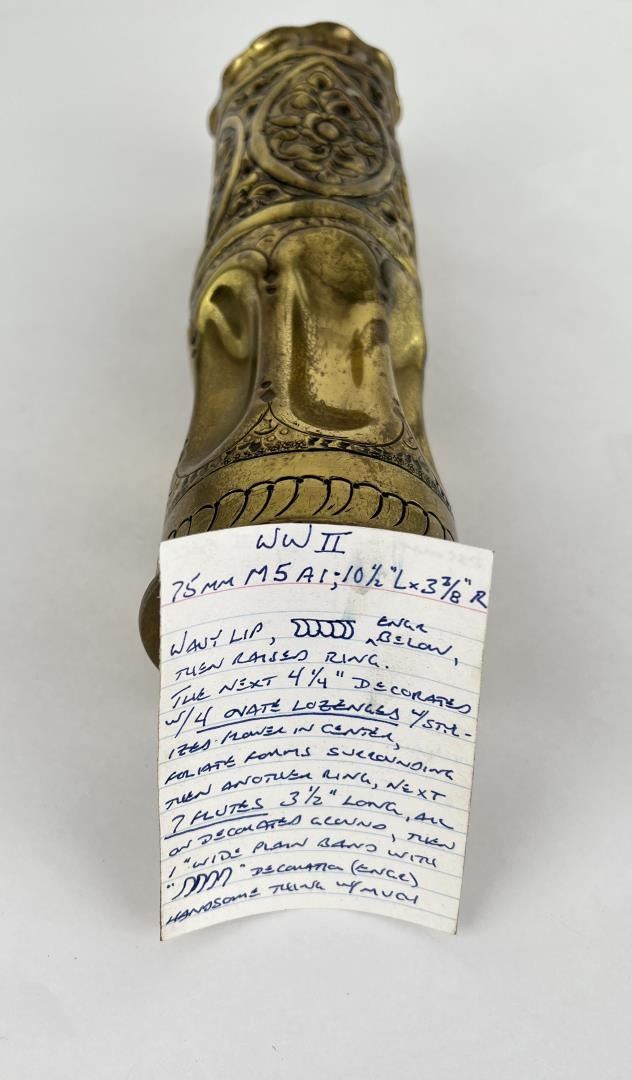 WW II
75MM M5A1; 10½"L x 3⅜" R
WAVY LIP, ENGR BELOW,
THEN RAISED RING.
THE NEXT 4¼" DECORATED
W/ 4 OVATE LOZENGES W/STYL-
IZED FLOWER IN CENTER,
FOLIATE FORMS SURROUNDING
THEN ANOTHER RING, NEXT
7 FLUTES 3½" LONG, ALL
ON DECORATED GROUND, THEN
1" WIDE PLAIN BAND WITH
" " DECORATION (ENGR)
HANDSOME THING W/MUCH